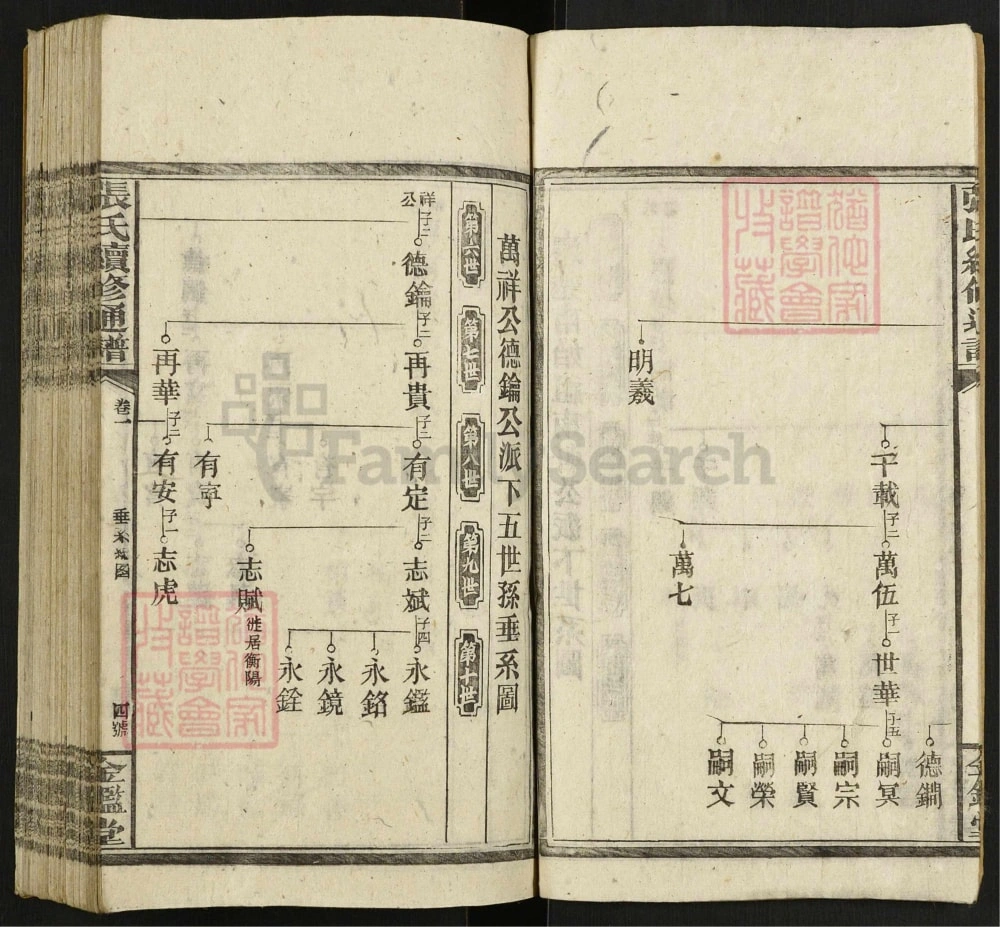 張氏續修通譜
明羲
千載 子二
萬伍 子一
世華 子五
嗣冥
嗣宗
嗣賢
嗣榮
嗣文
萬七
德鐗
萬祥公德鑰公派下五世孫垂系圖
第六世
第七世
第八世
第九世
第十世
祥公 子二
德鑰 子二
再貴 子二
有定 子二
志斌 子四
永鑑
永銘
永鏡
永銓
志賦 徙居衡陽
有寧
再華 子二
有安 子一
志虎
張氏續修通譜
卷一
垂系圖
四號
金鑑堂
FamilySearch
猶他家譜學會特藏
猶他家譜學會特藏